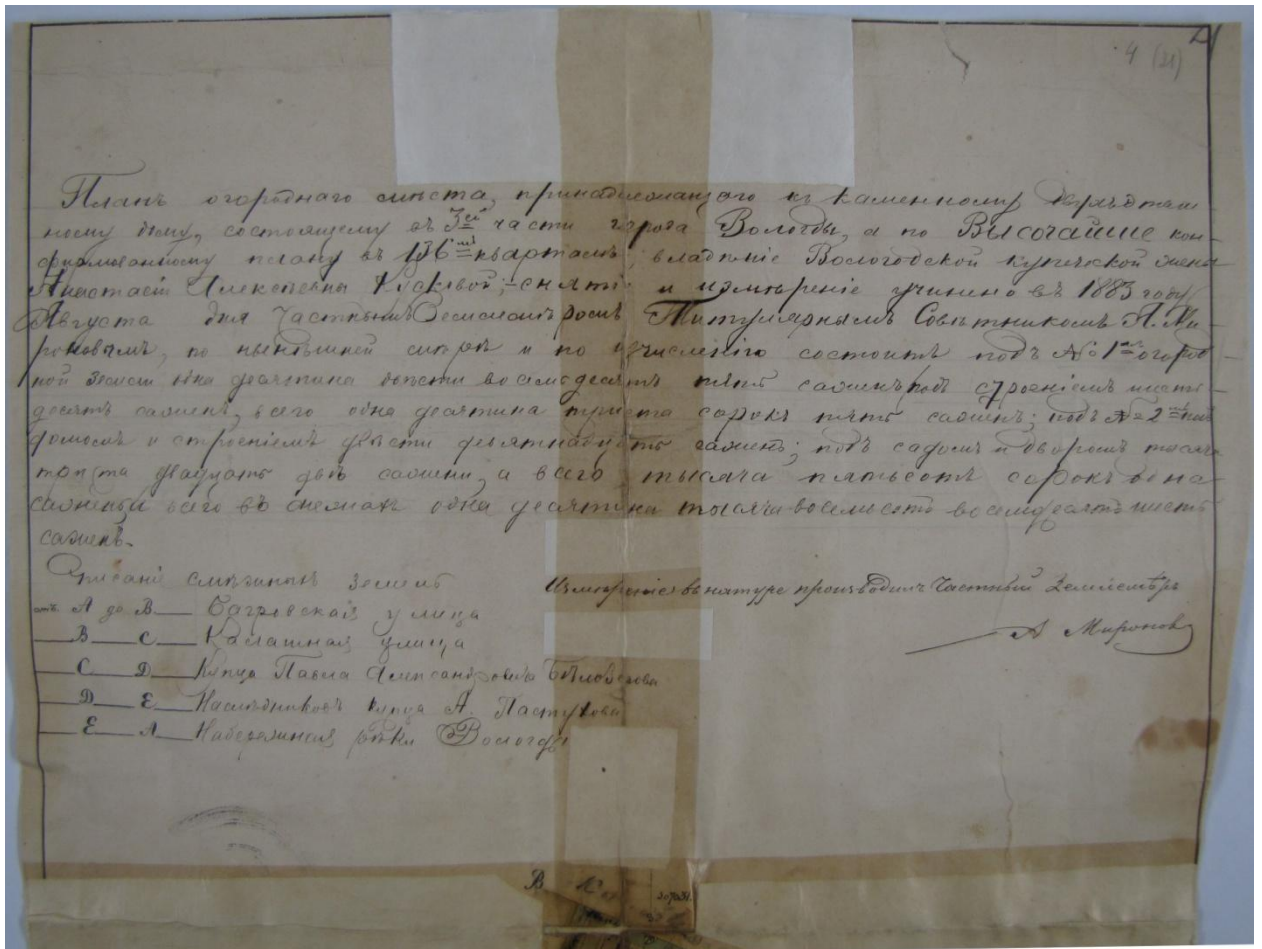 4 (21)
Планъ огороднаго мѣста, принадлежащаго къ каменному
ному дому, состоящему въ 3ей части города Вологды, а по Высочайше кон-
фирмованному плану въ 136мъ кварталѣ владѣніе Вологодской купеческой жены
Анастасіи Алексѣевны Кусковой, снятіе и измѣреніе учинено въ 1883 году
Августа дня Частнымъ Землемѣромъ Титулярнымъ Совѣтникомъ А. Ми-
роновымъ, по нынѣшней съемкѣ и по изчисленію состоитъ подъ № 1мъ огород-
ной земли одна десятина двѣсти восемдесятъ пять сажень, подъ строеніемъ шесть-
десятъ сажень, всего одна десятина триста сорокъ пять сажень; подъ № 2мъ подъ
домомъ и строеніемъ двѣсти девятнадцать сажень; подъ садомъ и дворомъ тысяча
триста двадцать двѣ сажени, а всего тысяча пятьсотъ сорокъ одна
сажень, а всего въ одна десятина тысяча восемьсотъ восемдесятъ шесть
сажень.
Описаніе смѣжныхъ земель
Измѣреніе въ натурѣ производилъ Частный Землемѣръ
А Мироновъ
отъ А до В Багровская улица
В С Калашная улица
С D Купца Павла Александровича Бѣлозерова
D Е Наслѣдниковъ купца А. Пастухова
Е А Набережная рѣки Вологды
В